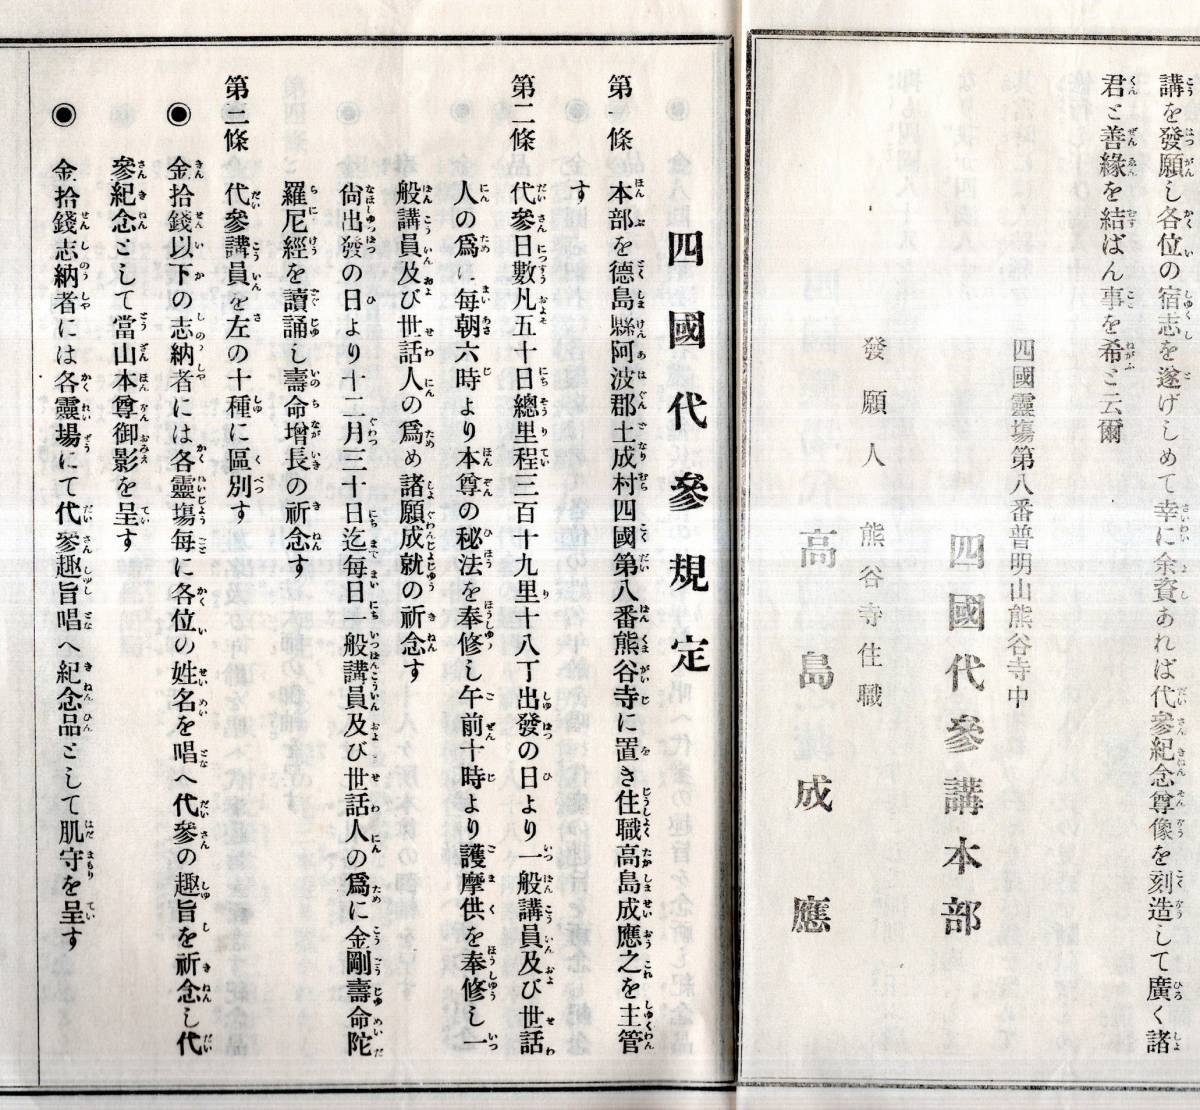 講を發願し各位の宿志を遂げしめて幸に余資あれば代參紀念尊像を刻造して廣く諸
君と善緣を結ばん事を希と云爾
四國靈塲第八番普明山熊谷寺中
四國代參講本部
發願人熊谷寺住職
高島成應
四國代參規定
第一條 本部を德島縣阿波郡土成村四國第八番熊谷寺に置き住職高島成應之を主管
す
第二條 代參日數凡五十日總里程三百十九里十八丁出發の日より一般講員及び世話
人の爲に每朝六時より本尊の秘法を奉修し午前十時より護摩供を奉修し一
般講員及び世話人の爲め諸願成就の祈念す
尙出發の日より十二月三十日迄每日一般講員及び世話人の爲に金剛壽命陀
羅尼經を讀誦し壽命增長の祈念す
第三條 代參講員を左の十種に區別す
◉ 金拾錢以下の志納者には各靈塲每に各位の姓名を唱へ代參の趣旨を祈念し代
參紀念として當山本尊御影を呈す
◉ 金拾錢志納者には各靈塲にて代參趣旨唱へ紀念品として肌守を呈す